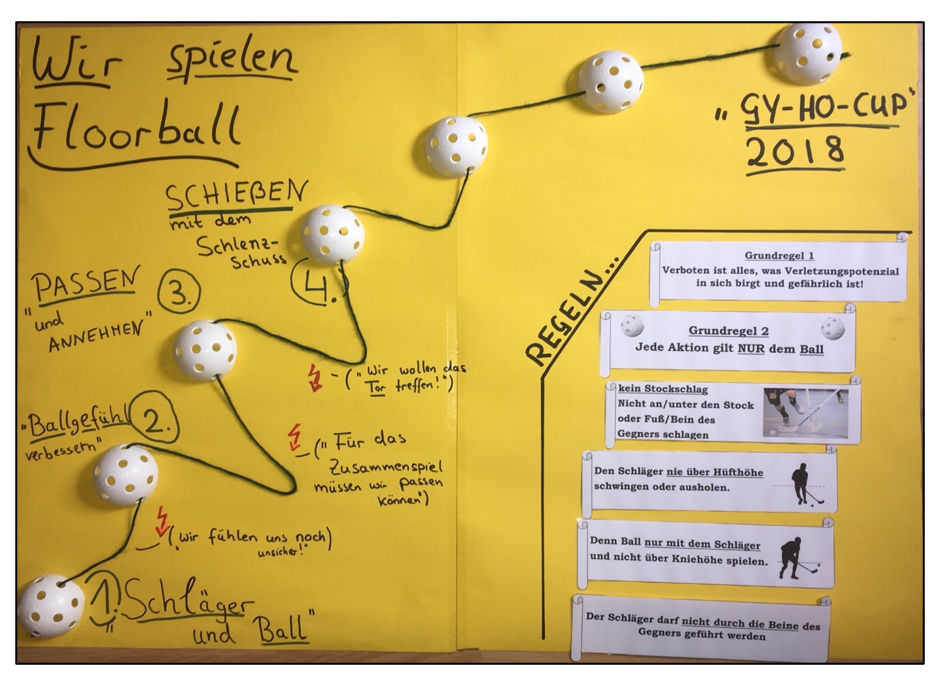 Wir spielen
Floorball
"GY-HO-CUP"
2018
SCHIEßEN
mit dem
Schlenz-
Schuss
4.
PASSEN
"und
ANNEHMEN"
3.
("Wir wollen das
Tor treffen!")
"Ballgefühl
verbessern"
2.
("Für das
Zusammenspiel
müssen wir passen
können")
("wir fühlen uns noch)
unsicher!"
1. "Schläger
und Ball"
REGELN...
Grundregel 1
Verboten ist alles, was Verletzungspotenzial
in sich birgt und gefährlich ist!
Grundregel 2
Jede Aktion gilt NUR dem Ball
kein Stockschlag
Nicht an/unter den Stock
oder Fuß/Bein des
Gegners schlagen
Den Schläger nie über Hüfthöhe
schwingen oder ausholen.
Denn Ball nur mit dem Schläger
und nicht über Kniehöhe spielen.
Der Schläger darf nicht durch die Beine des
Gegners geführt werden